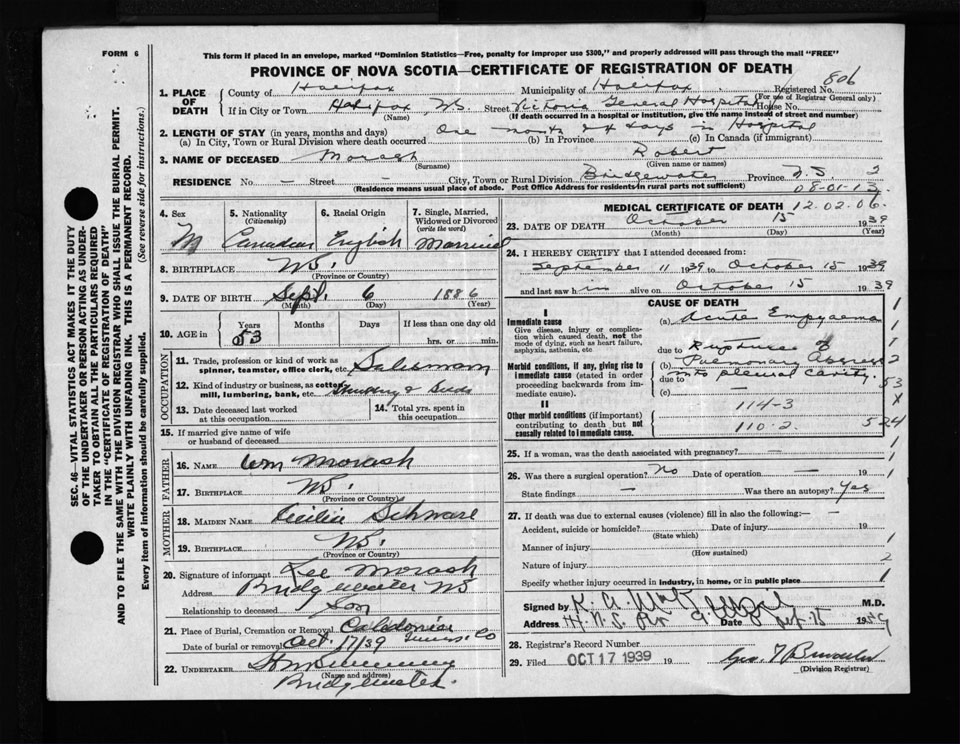 FORM 6
This form if placed in an envelope, marked "Dominion Statistics—Free, penalty for improper use $300," and properly addressed will pass through the mail "FREE"
PROVINCE OF NOVA SCOTIA—CERTIFICATE OF REGISTRATION OF DEATH
806
1. PLACE OF DEATH
County of Halifax Municipality of Halifax Registered No.
(For use of Registrar General only)
If in City or Town Halifax, N.S. Street Victoria General Hospital House No.
(Name) (If death occurred in a hospital or institution, give the name instead of street and number)
2. LENGTH OF STAY (in years, months and days) One month & 4 days in Hospital
(a) In City, Town or Rural Division where death occurred (b) In Province (c) In Canada (if immigrant)
3. NAME OF DECEASED Morash Robert
(Surname) (Given name or names)
RESIDENCE No. — Street — City, Town or Rural Division Bridgewater Province N.S. 2
(Residence means usual place of abode. Post Office Address for residents in rural parts not sufficient) 08-01-13
4. Sex M
5. Nationality (Citizenship) Canadian
6. Racial Origin English
7. Single, Married, Widowed or Divorced (write the word) Married
8. BIRTHPLACE N.S.
(Province or Country)
9. DATE OF BIRTH Sept. 6 1886
(Month) (Day) (Year)
10. AGE in Years Months Days If less than one day
53 hrs. or min.
11. Trade, profession or kind of work as spinner, teamster, office clerk, etc. Salesman
12. Kind of industry or business, as cotton mill, lumbering, bank, etc. & Seeds
13. Date deceased last worked at this occupation
14. Total yrs. spent in this occupation
15. If married give name of wife or husband of deceased
FATHER
16. NAME Wm Morash
17. BIRTHPLACE N.S.
(Province or Country)
MOTHER
18. MAIDEN NAME
19. BIRTHPLACE N.S.
(Province or Country)
20. Signature of informant Lee Morash
Address Bridgewater NS
Relationship to deceased Son
21. Place of Burial, Cremation or Removal Caledonia Queens Co
Date of burial or removal Oct. 17/39
22. UNDERTAKER
(Name and address)
Bridgewater
MEDICAL CERTIFICATE OF DEATH 12.02.06.
23. DATE OF DEATH October 15 1939
(Month) (Day) (Year)
24. I HEREBY CERTIFY that I attended deceased from:
September 11 1939 to October 15 1939
and last saw h im alive on October 15 1939
CAUSE OF DEATH
I
Immediate cause
Give disease, injury or complication which caused death, not the mode of dying, such as heart failure, asphyxia, asthenia, etc
(a) Acute Empyaema
due to Rupture of
Morbid conditions, if any, giving rise to immediate cause (stated in order proceeding backwards from immediate cause).
(b) Pulmonary Abscess
due to into pleural cavity.
(c) —
II
Other morbid conditions (if important) contributing to death but not causally related to immediate cause.
114-3
110-2
1
1
1
2
53
X
524
25. If a woman, was the death associated with pregnancy? — 1
26. Was there a surgical operation? No Date of operation — 19 1
State findings — Was there an autopsy? Yes
27. If death was due to external causes (violence) fill in also the following:—
Accident, suicide or homicide? Date of injury 19
(State which)
Manner of injury 1
(How sustained)
Nature of injury 2
Specify whether injury occurred in industry, in home, or in public place 1
Signed by M.D.
Address Date 1939
28. Registrar's Record Number
29. Filed OCT 17 1939 19
(Division Registrar)
SEC. 46—VITAL STATISTICS ACT MAKES IT THE DUTY
OF THE UNDERTAKER OR PERSON ACTING AS UNDERTAKER TO OBTAIN ALL THE PARTICULARS REQUIRED
IN THE "CERTIFICATE OF REGISTRATION OF DEATH"
AND TO FILE THE SAME WITH THE DIVISION REGISTRAR WHO SHALL ISSUE THE BURIAL PERMIT.
WRITE PLAINLY WITH UNFADING INK. THIS IS A PERMANENT RECORD.
Every item of information should be carefully supplied. (See reverse side for instructions.)